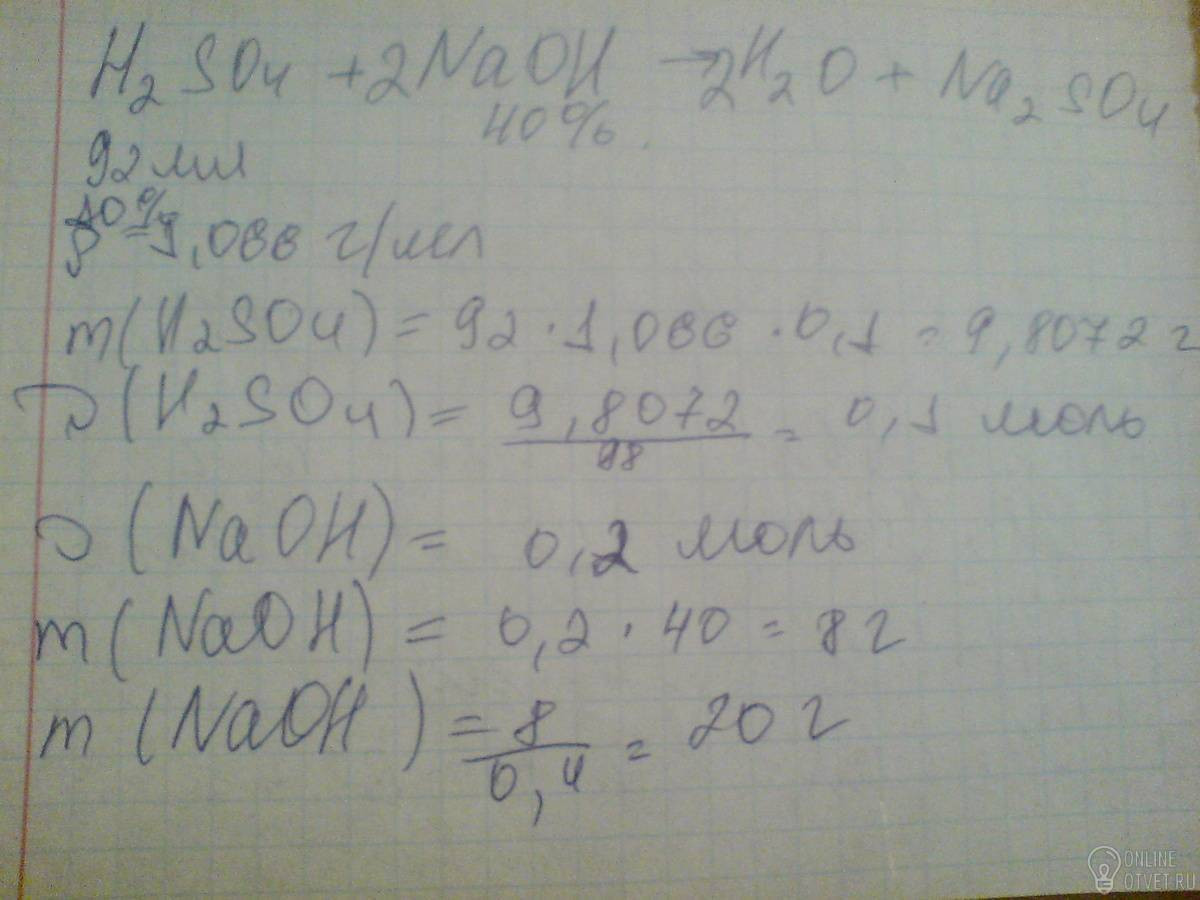 H₂SO₄ + 2NaOH → 2H₂O + Na₂SO₄
40%.
92 мл
10%
ρ = 1,066 г/мл
m(H₂SO₄) = 92 · 1,066 · 0,1 = 9,8072 г
ν(H₂SO₄) = 9,8072 / 98 = 0,1 моль
ν(NaOH) = 0,2 моль
m(NaOH) = 0,2 · 40 = 8 г
m(NaOH) = 8 / 0,4 = 20 г
ONLINE
OTVET.RU